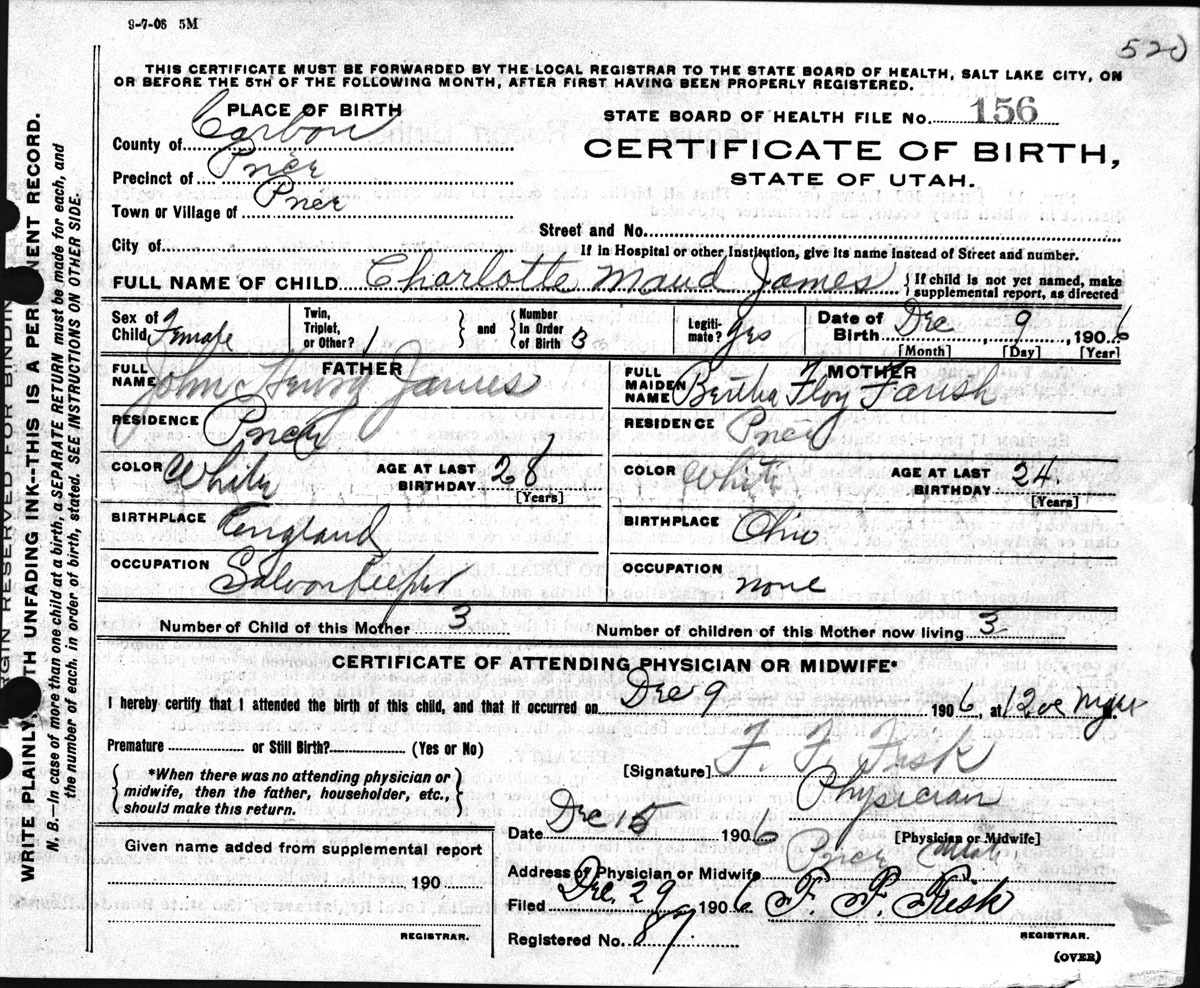 9-7-06 5M
520
THIS CERTIFICATE MUST BE FORWARDED BY THE LOCAL REGISTRAR TO THE STATE BOARD OF HEALTH, SALT LAKE CITY, ON
OR BEFORE THE 5TH OF THE FOLLOWING MONTH, AFTER FIRST HAVING BEEN PROPERLY REGISTERED.
PLACE OF BIRTH
County of Carbon
Precinct of Price
Town or Village of Price
City of
STATE BOARD OF HEALTH FILE No. 156
CERTIFICATE OF BIRTH,
STATE OF UTAH.
Street and No.
If in Hospital or other Institution, give its name instead of Street and number.
FULL NAME OF CHILD Charlotte Maud James { If child is not yet named, make supplemental report, as directed
Sex of Child Female Twin, Triplet, or Other? 1 } and { Number In Order of Birth 3 Legitimate? yes Date of Birth Dec, 9, 1906
[Month] [Day] [Year]
FATHER
FULL NAME John Henry James
RESIDENCE Price
COLOR White AGE AT LAST BIRTHDAY 28
[Years]
BIRTHPLACE England
OCCUPATION Saloon Keeper
MOTHER
FULL MAIDEN NAME Bertha Floy Farish
RESIDENCE Price
COLOR White AGE AT LAST BIRTHDAY 24.
[Years]
BIRTHPLACE Ohio
OCCUPATION none
Number of Child of this Mother 3 Number of children of this Mother now living 3
CERTIFICATE OF ATTENDING PHYSICIAN OR MIDWIFE*
I hereby certify that I attended the birth of this child, and that it occurred on Dec 9 1906, at 12 M.
Premature or Still Birth? (Yes or No)
{ *When there was no attending physician or midwife, then the father, householder, etc., should make this return. }
[Signature] F. F. Fisk
Physician
[Physician or Midwife]
Date Dec 15 1906
Address of Physician or Midwife Price Utah
Given name added from supplemental report
190
REGISTRAR.
Filed Dec. 29 1906 F. F. Fisk
REGISTRAR.
Registered No. 87
(OVER)
MARGIN RESERVED FOR BINDING
WRITE PLAINLY WITH UNFADING INK--THIS IS A PERMANENT RECORD.
N. B.--In case of more than one child at a birth, a SEPARATE RETURN must be made for each, and
the number of each, in order of birth, stated. SEE INSTRUCTIONS ON OTHER SIDE.